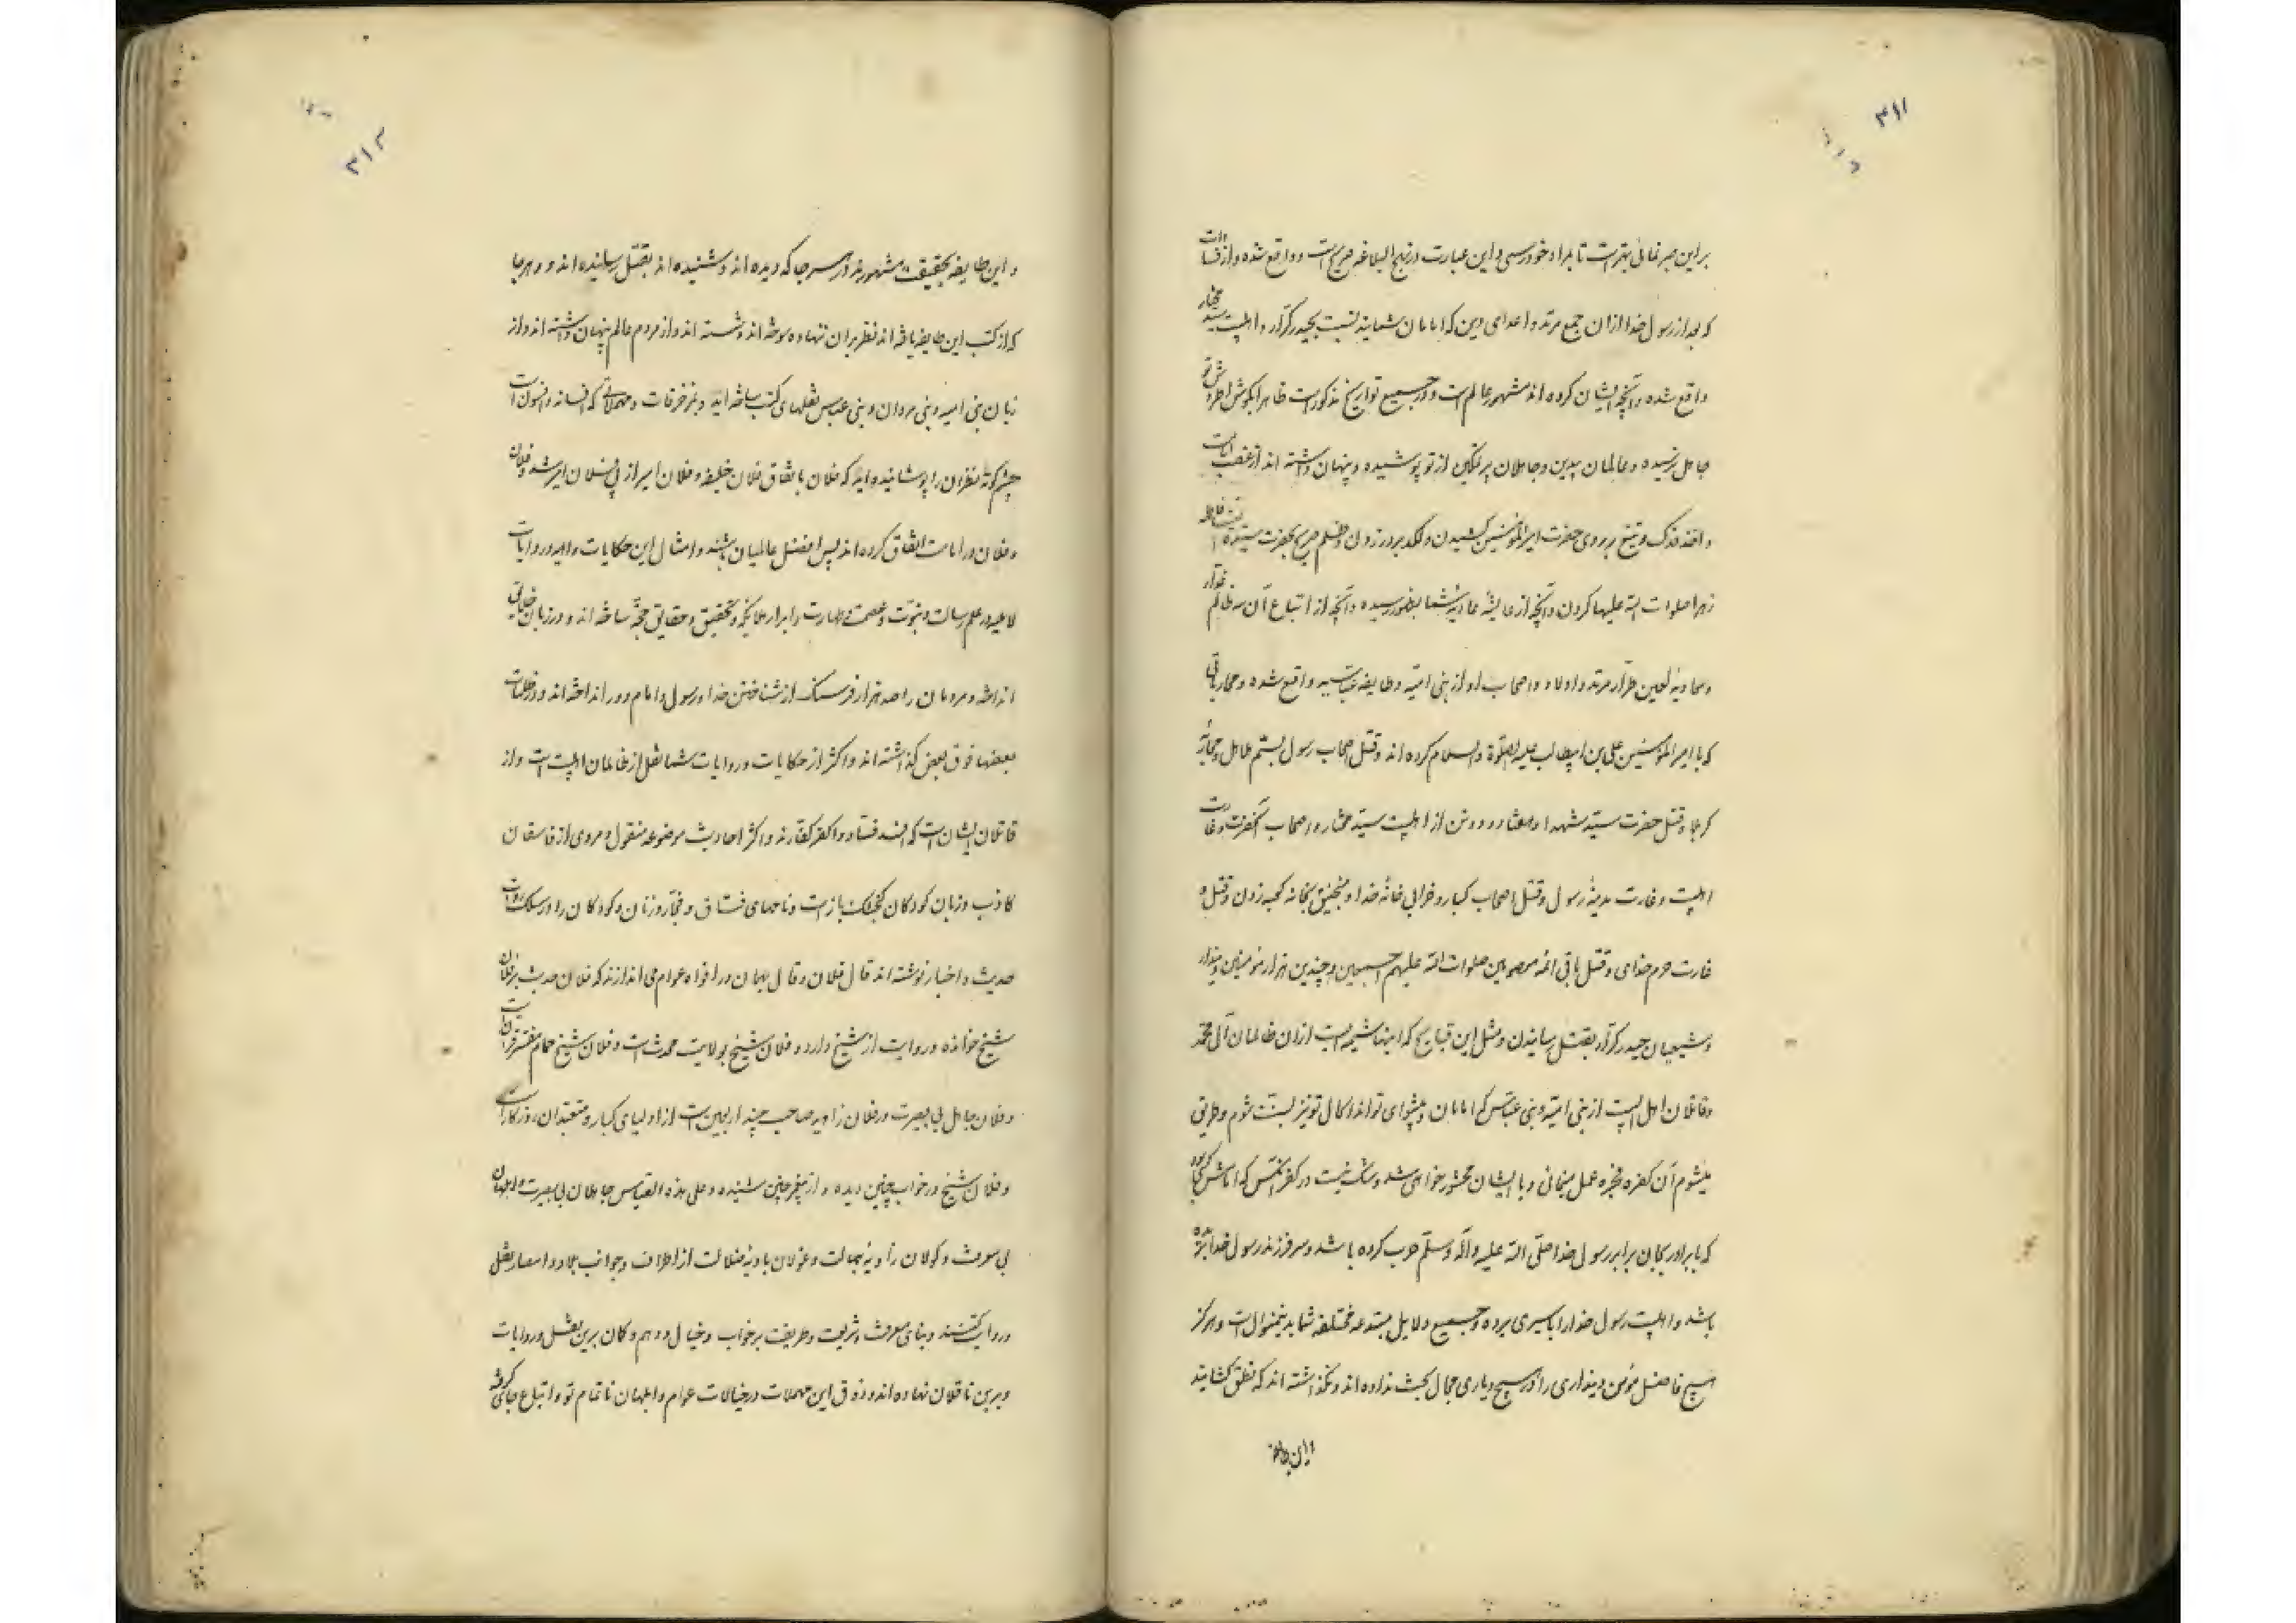 ۳۱۱
بر این صبر نمائی بهتر است تا بمراد خود رسی و این عبارت در نهج البلاغه صریح است و واقع شده و از فسادات
که بعد از رسول خدا ازان جمع مرتد و اعدای دین که امامان شمایند نسبت بحیدر کرّار و اهلبیت سید مختار
واقع شده و آنچه ایشان کرده اند مشهور عالم است و در جمیع تواریخ مذکور است ظاهرا بگوش
جاهل نرسیده و عالمان بیدین و جاهلان پر تکین از تو پوشیده و پنهان داشته اند از غصب امامت
و اخذ فدک و تیغ بر روی حضرت امیر المؤمنین کشیدن و لکد بر در زدن و ظلم صریح بحضرت سیده النسا فاطمه
زهرا صلوات الله علیها کردن و آنچه از عایشه شما بظهور رسیده و آنچه از اتباع آن سه ظالم غدّار
و معاویهٔ لعین طرّار مرتد و اولاد و اصحاب او از بنی امیّه و طایفه عباسیه واقع شده و محارباتی
که با امیر المؤمنین علی بن ابیطالب علیه الصلوة والسلام کرده اند و قتل اصحاب رسول بستم باطل و محاربهٔ
کربلا و قتل حضرت سیّد شهدا و هفتاد و دو تن از اهلبیت سیّد مختار و اصحاب آنحضرت و غارت
اهلبیت و غارت مدینهٔ رسول و قتل اصحاب کبار و خرابی خانهٔ خدا و منجنیق بخانه کعبه زدن و قتل و
غارت حرم خدای و قتل باقی ائمه معصومین صلوات الله علیهم اجمعین و چندین هزار مؤمنین دیندار
و شیعیان حیدر کرّار بقتل رسانیدن و مثل این قبایح که اینها شمه ایست ازان ظالمان آل محمّد
و قاتلان اهل البیت از بنی امیّه و بنی عبّاس که امامان و پیشوای تو اند و کمال تو نیز بسنّت شوم و طریق
میشوم آن کفره فجره عمل مینمائی و با ایشان محشور خواهی شد و شک نیست در کفر آنکس که امامش کسی بود
که با برادر بجان برابر رسول خدا صلّی الله علیه و آله و سلّم حرب کرده باشد و سر فرزند رسول خدا بریده
باشد و اهلبیت رسول خدا را باسیری برده و جمیع دلایل مبتدعه مختلفه شما بدینمنوال است و هرگز
هیچ فاضل مؤمن دینداری را در هیچ دیاری مجال بحث نداده اند و نگذاشته اند که نطق گشایند
و این طایفه
۳۱۲
و این طایفه بحقیقت مشهورند در هر جا که دیده اند و شنیده اند بقتل رسانیده اند و هر جا
که از کتب این طایفه یافته اند نظر بران ننهاده سوخته اند و شسته اند و از مردم عالم پنهان داشته اند و از
زبان بنی امیه و بنی مروان و بنی عباس نقلهای کتب ساخته اند و بمزخرفات و مهملاتی که افسانه و افسون است
چشم کوته نظران را پوشانیده اند که فلان باتفاق فلان خلیفه و فلان امیر از پی فلان امیر شد و فلان
و فلان در امامت اتفاق کرده اند پس افضل عالمیان باشند و امثال این حکایات واهیه و روایات
لاعلیه در علم رسالت و نبوّت و عصمت و طهارت و ابرار ملایکه و تحقیق و حقایق حجّه ساخته اند و در زبان خلایق
انداخته و مردمان را صد هزار فرسنک از شناختن خدا و رسول و امام دور انداخته اند و در ظلمات
بعضها فوق بعض گذاشته اند و اکثر از حکایات و روایات شما نقل از ظالمان اهلبیت است و از
قاتلان ایشان است که افسد فسّاد و اکفر کفّارند و اکثر احادیث موضوعه منقول و مروی از فاسقان
کاذب و زنان کودکان کنجشک باز است و نامهای فسّاق و فجّار و زنان و کودکان را در سلک روات
حدیث و اخبار نوشته اند قال فلان و قال بهمان در افواه عوام می اندازند که فلان حدیث بر فلان
شیخ خوانده و روایت از شیخ دارد و فلان شیخ بولایت محدث است و فلان شیخ مفسّر قرآن است
و فلان جاهل بی بصیرت در فلان زاویه صاحب چند اربعین است از اولیای کبار و مقتدای روزکار است
و فلان شیخ در خواب چنین دیده و از پیغمبر چنین شنیده و علی هذه القیاس جاهلان بی بصیرت و ابلهان
بی معرفت و کولان زاویهٔ جهالت و غولان بادیهٔ ضلالت از اطراف و جوانب بلاد و امصار نقل
و روایت کنند و بنای معرفت و شریعت و طریقت بر خواب و خیال و وهم و کمان برین نقل و روایات
و برین ناقلان نهاده اند و ذوق این مهملات در خیالات عوام و ابلهان ناتمام تو و اتباع جای کرفته